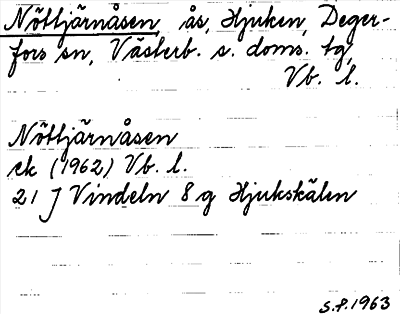 Nöttjärnåsen, ås, Hjuken, Deger-
fors sn, Västerb. s. doms. tg,
Vb. l.
Nöttjärnåsen
ek (1962) Vb. l.
21 J Vindeln 8 g Hjukskälen
S.P. 1963